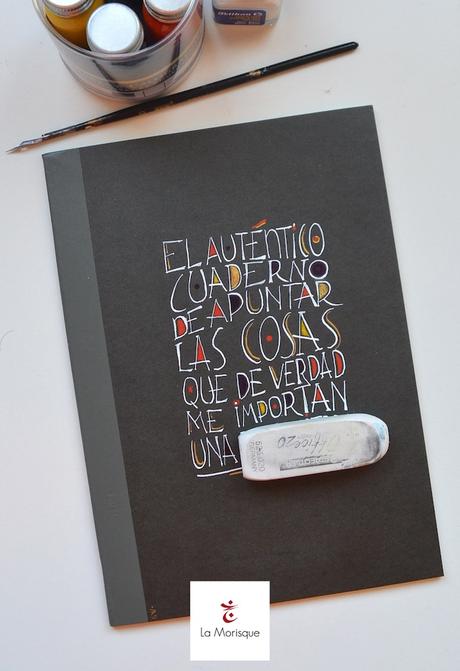 Pelikan
EL AUTÉNTICO
CUADERNO
DE APUNTAR
LAS COSAS
QUE DE VERDAD
ME iMPORTAN
UNA
Office20
GERMANY
La Morisque